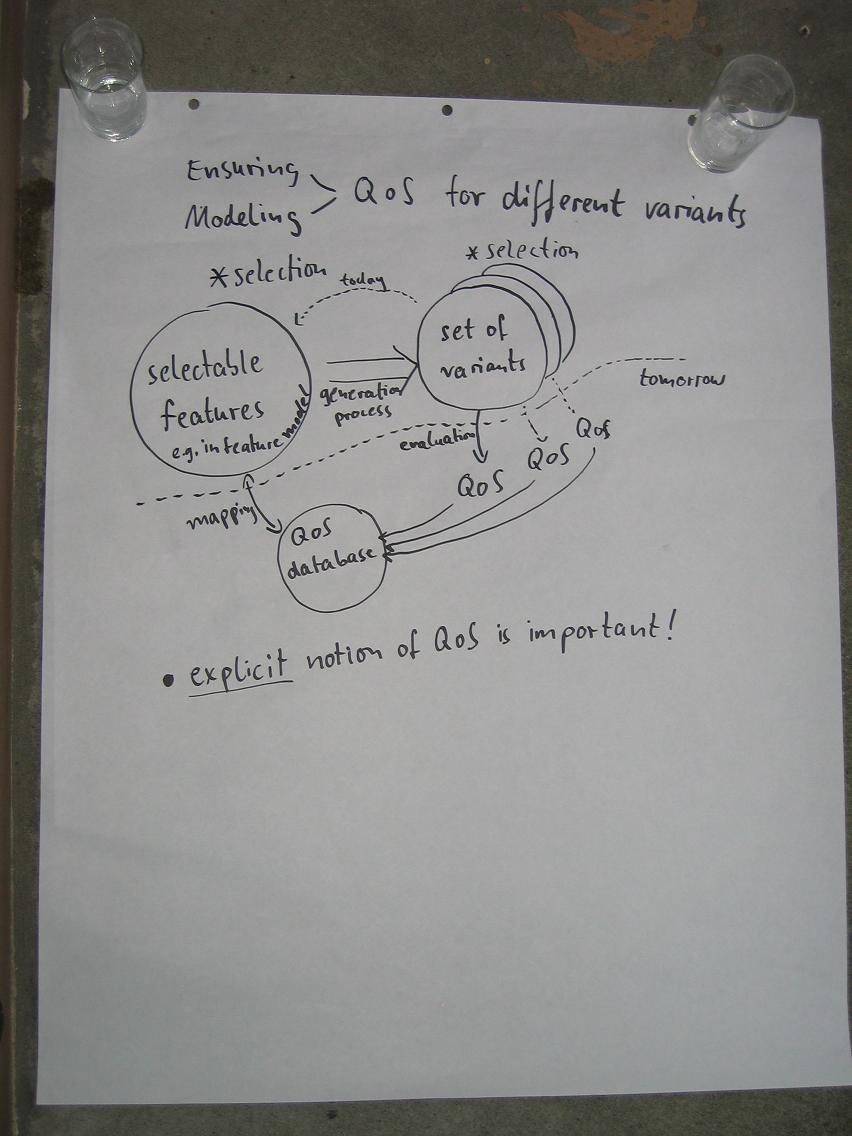 Ensuring
Modeling
QoS for different variants
* selection
* selection
today
selectable
features
e.g. in feature model
generation
process
set of
variants
tomorrow
evaluation
QoS
QoS
QoS
mapping
QoS
database
• explicit notion of QoS is important!